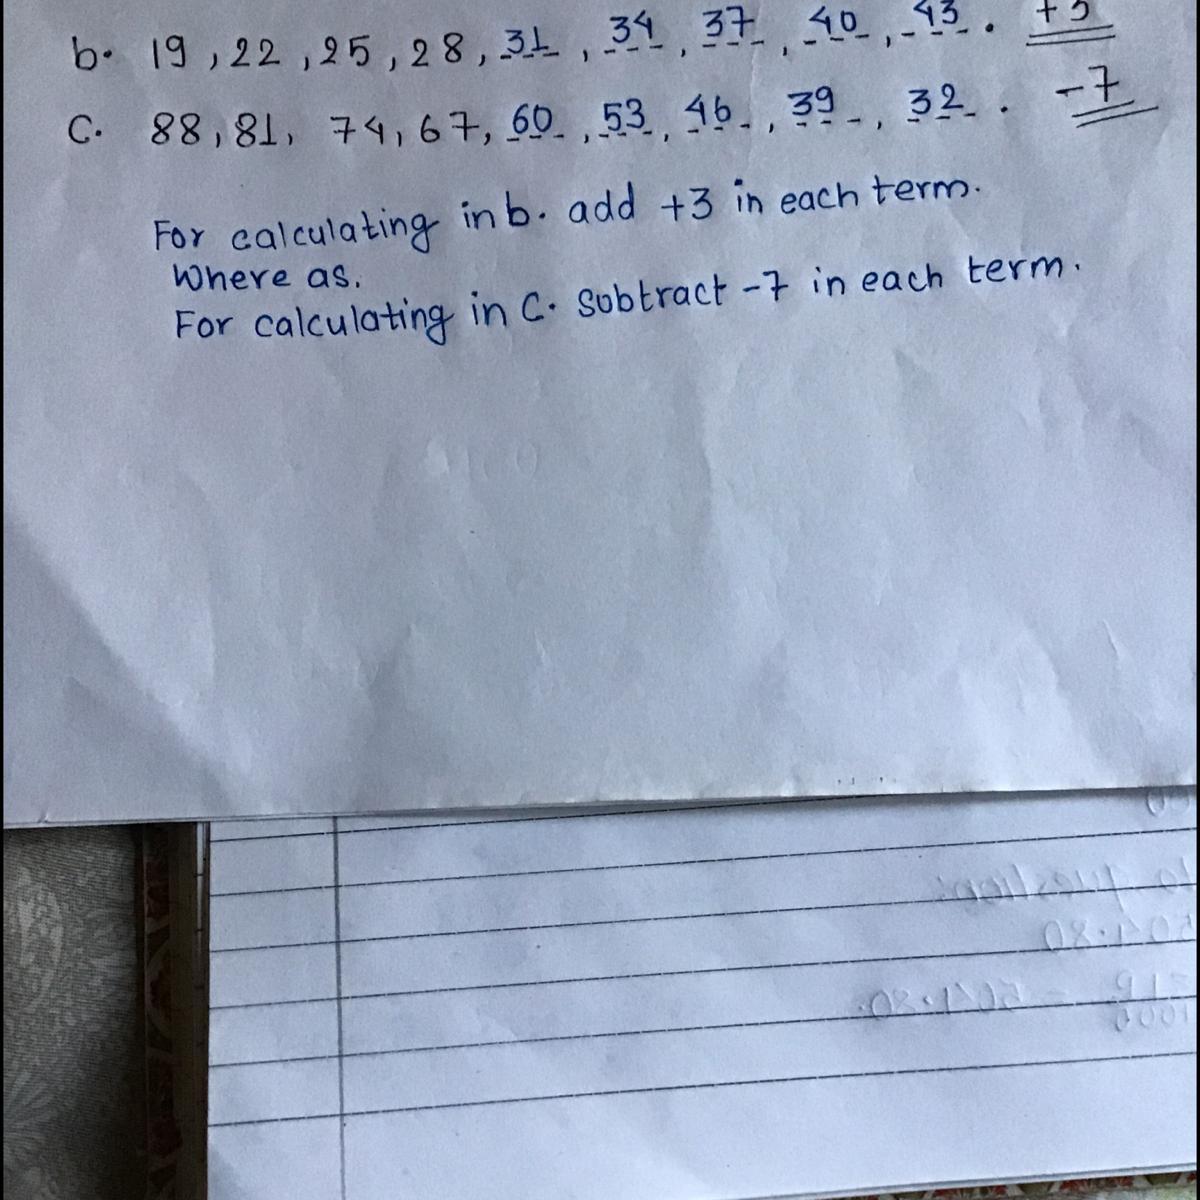 b. 19 , 22 , 25 , 28 , 31 , 34 , 37 , 40 , 43 . +3
C. 88 , 81 , 74 , 67 , 60 , 53 , 46 , 39 , 32 . -7
For calculating in b. add +3 in each term.
Where as.
For calculating in C. Subtract -7 in each term.